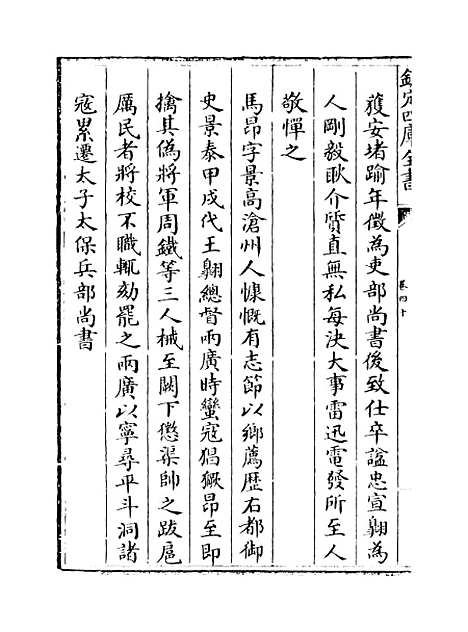 欽定四庫全書
卷四十
獲安堵踰年徵為吏部尚書後致仕卒諡忠宣翺為
人剛毅耿介質直無私每決大事雷迅電發所至人
敬憚之
馬昂字景高滄州人慷慨有志節以鄉薦歴右都御
史景泰甲戌代王翺總督兩廣時蠻寇猖獗昂至即
擒其偽將軍周鐵等三人械至闕下懲渠帥之跋扈
厲民者將校不職輒劾罷之兩廣以寧尋平斗洞諸
寇累遷太子太保兵部尚書